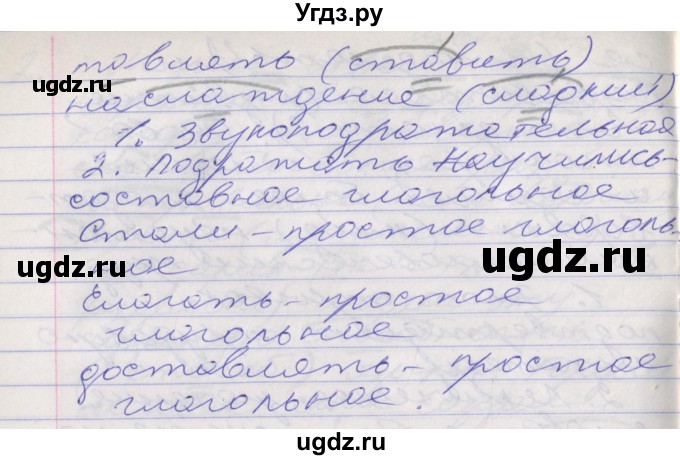 Угдз.ру
тавлять (ставить)
наслаждение (сладкий)
1. Звукоподражательная
2. Подражать научились-
составное глагольное
Стали - простое глаголь-
ное
Слагать - простое
глагольное
доставлять - простое
глагольное.
ugdz.ru
ugdz.ru
ugdz.ru
ugdz.ru
ugdz.ru
ugdz.ru
ugdz.ru
ugdz.ru